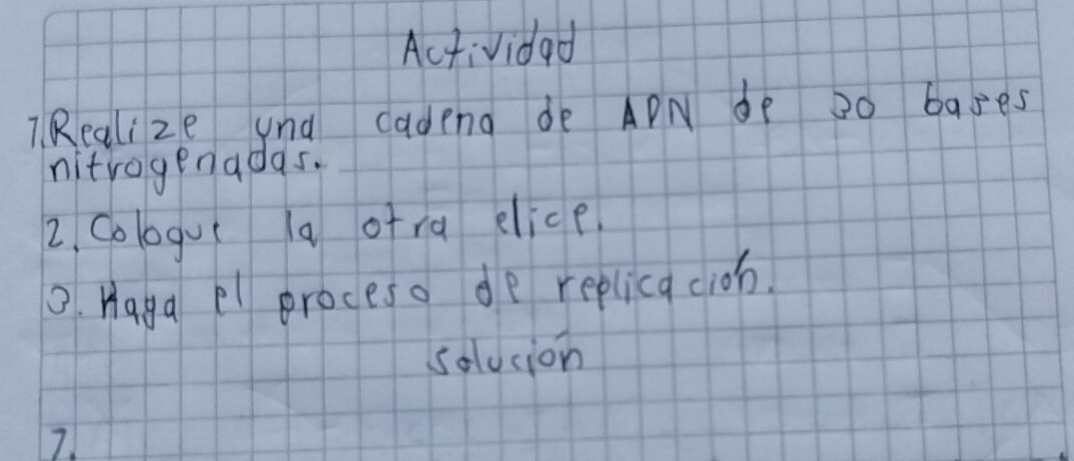 Actividad
1. Realize una cadena de ADN de 30 bases
nitrogenadas.
2. Coloque la otra elice.
3. Haga el proceso de replicación.
solución
1.